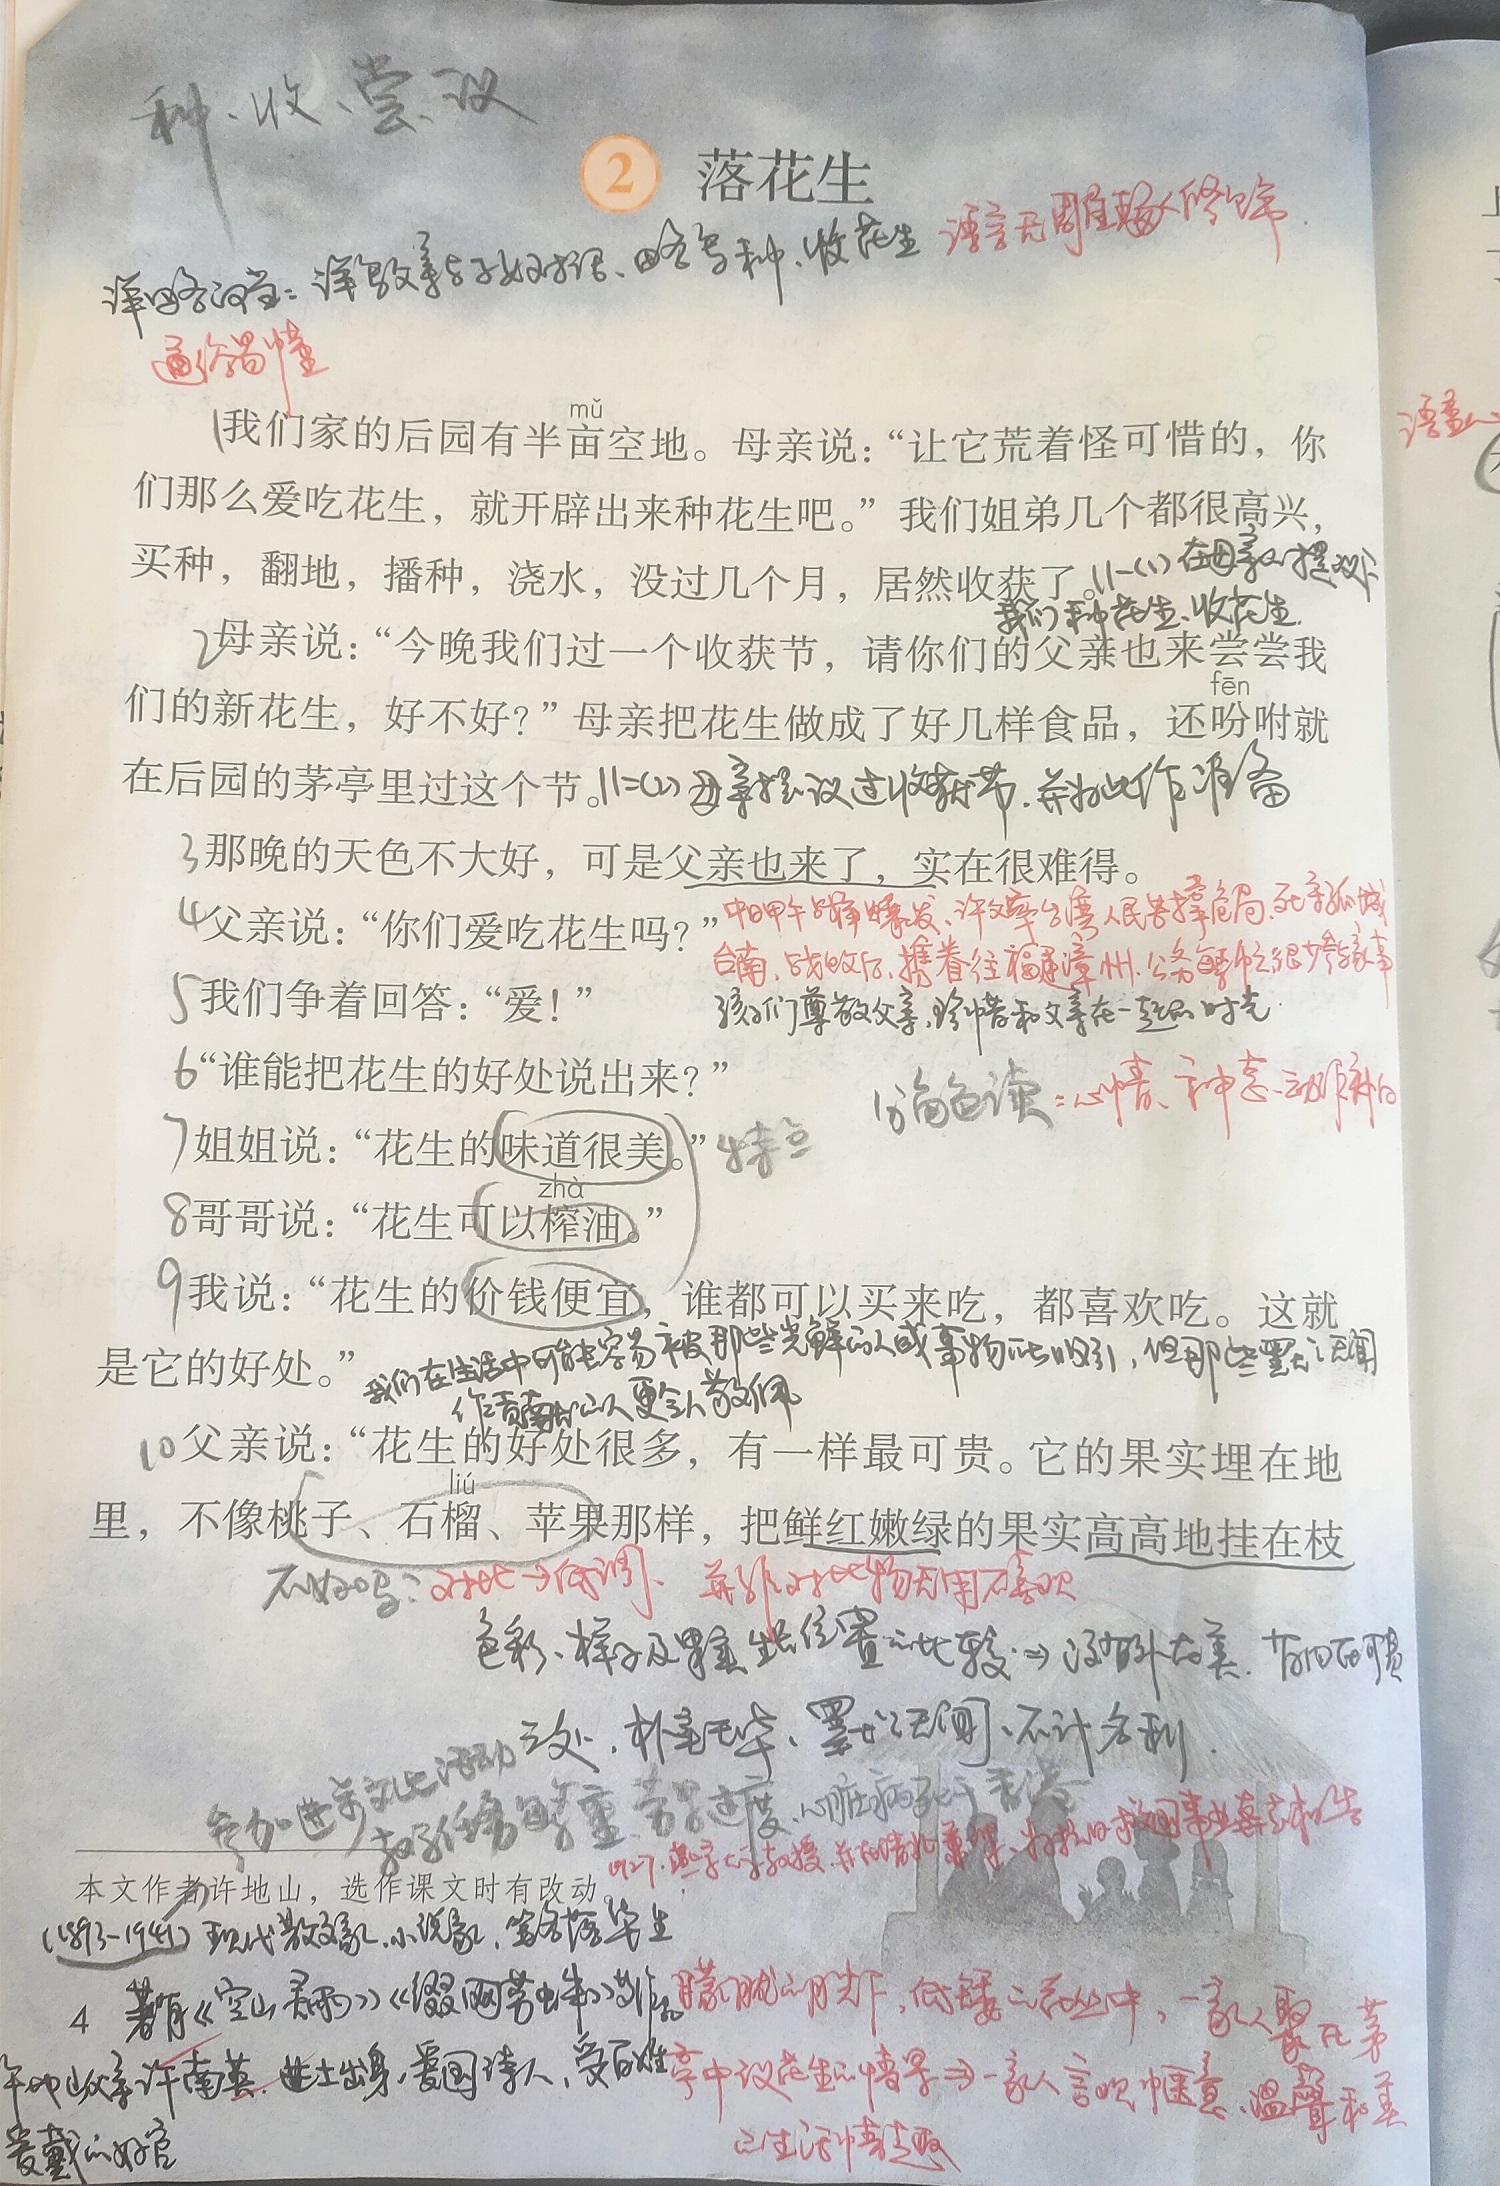 种、收、尝、议
2 落花生
语言无雕琢修饰
详略得当：详写父亲与子女对话、略写种、收花生
通俗易懂
mǔ
1我们家的后园有半亩空地。母亲说：“让它荒着怪可惜的，你
们那么爱吃花生，就开辟出来种花生吧。”我们姐弟几个都很高兴，
买种，翻地，播种，浇水，没过几个月，居然收获了。11一(1)在母亲的提议下
我们种花生、收花生
2母亲说：“今晚我们过一个收获节，请你们的父亲也来尝尝我
fēn
们的新花生，好不好？”母亲把花生做成了好几样食品，还吩咐就
在后园的茅亭里过这个节。11二(2)母亲提议过收获节，并为此作准备
3那晚的天色不大好，可是父亲也来了，实在很难得。
4父亲说：“你们爱吃花生吗？”中日甲午战争爆发、许父率台湾人民苦撑危局、死守孤城
台南，战败后，携眷往福建漳州，公务繁忙很少参与家事
5我们争着回答：“爱！”
孩子们尊敬父亲，珍惜和父亲在一起的时光
6“谁能把花生的好处说出来？”
分角色读：心情、神态、动作
7姐姐说：“花生的味道很美。”特点
zhà
8哥哥说：“花生可以榨油。”
9我说：“花生的价钱便宜，谁都可以买来吃，都喜欢吃。这就
是它的好处。”
我们在生活中可能容易被那些光鲜的人或事物所吸引，但那些默默无闻
作贡献的人更令人敬佩
10父亲说：“花生的好处很多，有一样最可贵。它的果实埋在地
liú
里，不像桃子、石榴、苹果那样，把鲜红嫩绿的果实高高地挂在枝
不好吗？对比→低调、并非对比物无用不喜欢
色彩、样子及果实生长位置的比较⇒没有外在美，有内在可贵
之处，朴实无华、默默无闻、不计名利
参加进步文化活动
教学任务繁重、劳累过度、心脏病死于香港
1927.燕京大学教授，为抗日救国事业奔走相告
本文作者许地山，选作课文时有改动。
(1893-1941)现代散文家、小说家，笔名落华生
4 著有《空山灵雨》《缀网劳蛛》等作品
许地山父亲许南英，进士出身，爱国诗人，受百姓
爱戴的好官
朦胧的月光下，低矮的花丛中，一家人聚在茅
亭中议花生的情景⇒一家人言欢惬意、温馨和美
的生活情趣